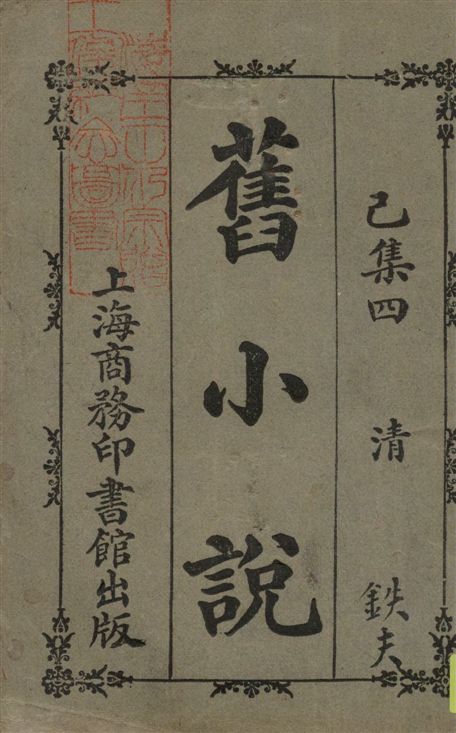 己集四 清 鉄夫
舊小說
上海商務印書館出版